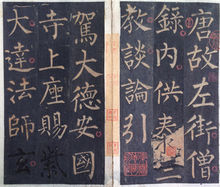 唐故左街僧
錄内供奉三
教談論引
駕大德安國
寺上座賜紫
大達法師玄